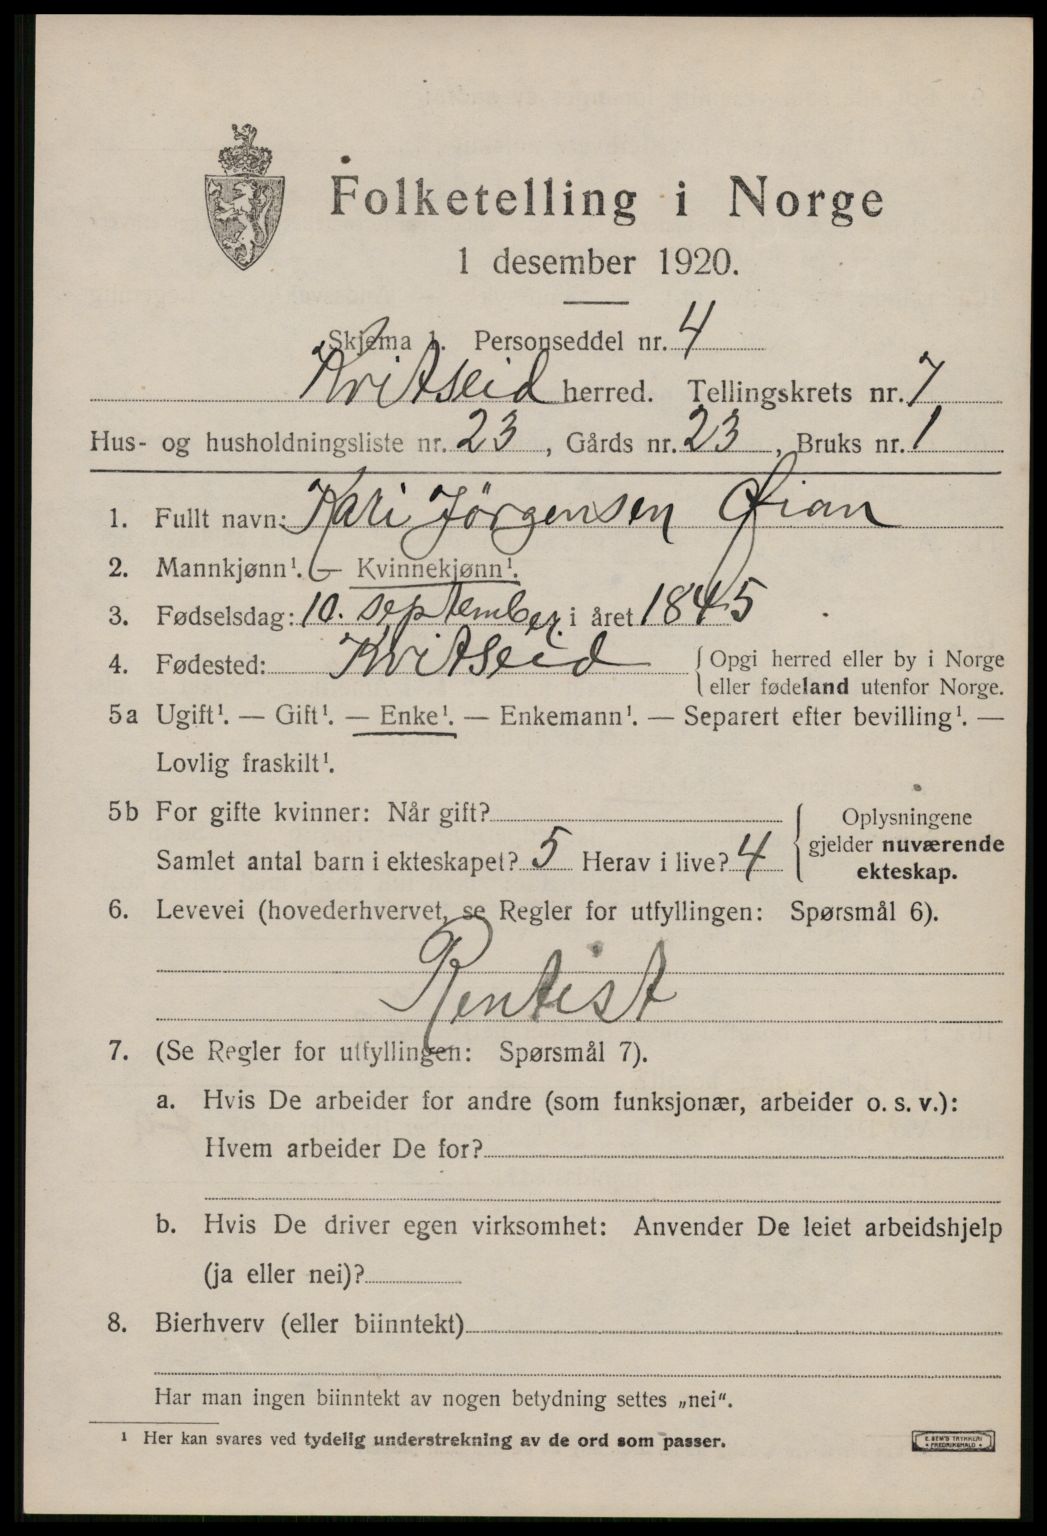 Folketelling i Norge
1 desember 1920.
Skjema 1. Personseddel nr. 4
Kvitseid herred. Tellingskrets nr. 7
Hus- og husholdningsliste nr. 23, Gårds nr. 23, Bruks nr. 1
1. Fullt navn: Kari Jörgensen Øian
2. Mannkjønn¹. — Kvinnekjønn¹.
3. Fødselsdag: 10. september. i året 1845
4. Fødested: Kvitseid { Opgi herred eller by i Norge
eller fødeland utenfor Norge.
5a Ugift¹. — Gift¹. — Enke¹. — Enkemann¹. — Separert efter bevilling¹. —
Lovlig fraskilt¹.
5b For gifte kvinner: Når gift?
Samlet antal barn i ekteskapet? 5 Herav i live? 4
Oplysningene
gjelder nuværende
ekteskap.
6. Levevei (hovederhvervet, se Regler for utfyllingen: Spørsmål 6).
Rentist
7. (Se Regler for utfyllingen: Spørsmål 7).
a. Hvis De arbeider for andre (som funksjonær, arbeider o. s. v.):
Hvem arbeider De for?
b. Hvis De driver egen virksomhet: Anvender De leiet arbeidshjelp
(ja eller nei)?
8. Bierhverv (eller biinntekt)
Har man ingen biinntekt av nogen betydning settes „nei".
¹ Her kan svares ved tydelig understrekning av de ord som passer.
E. SEM'S TRYKKERI
• FREDRIKSHALD •